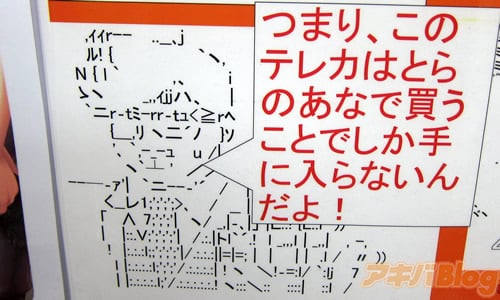 つまり、この
テレカはとら
のあなで買う
ことでしか手
に入らないん
だよ！
アキバBlog